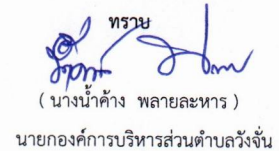 ทราบ
( นางน้ำค้าง พลายละหาร )
นายกองค์การบริหารส่วนตำบลวังจั่น